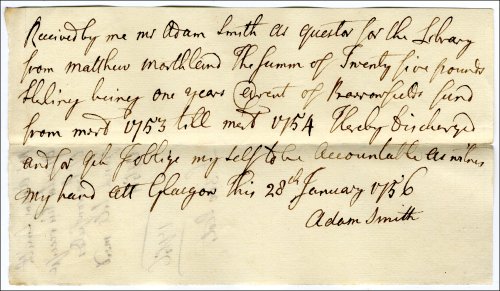 Received by me mr Adam Smith as questor for the Library
from matthew morthland The summ of Twenty five pounds
sterling being one years rent of Barrowfields fund
from mert 1753 till mert 1754 Hereby Discharged
and for qch I oblige my self to be Accountable as witnes
my hand att Glasgow This 28th January 1756
Adam Smith